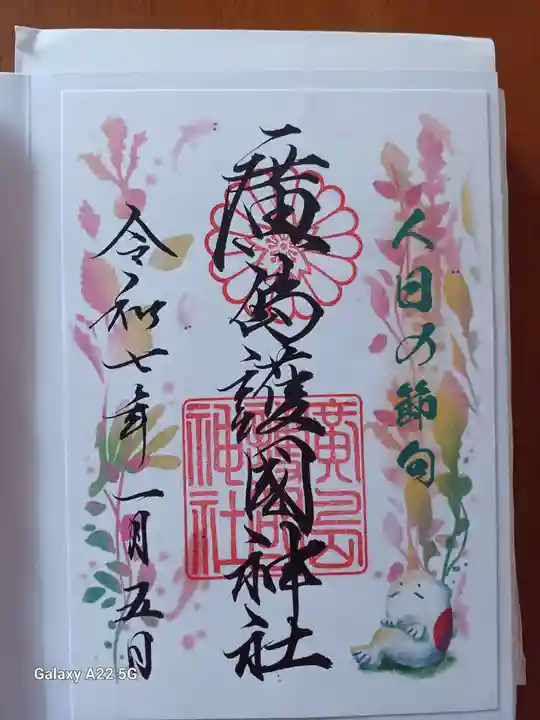 人日の節句
廣島護國神社
令和七年一月五日
廣島
護國
神社
Galaxy A22 5G